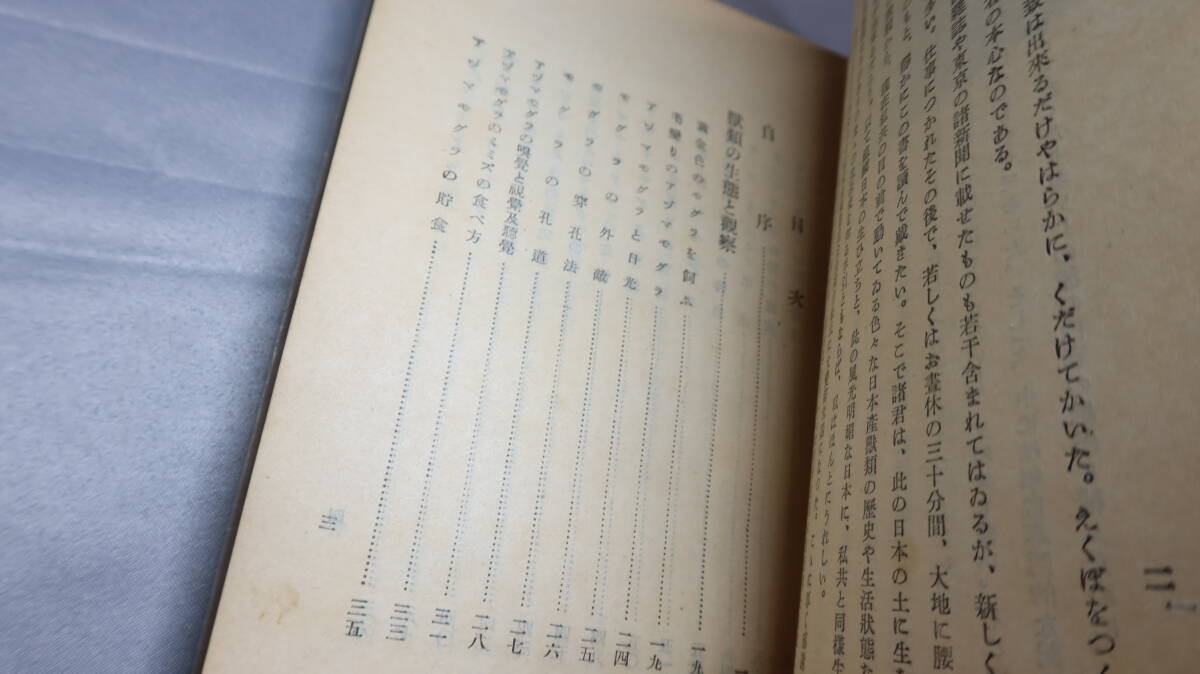 二
數は出來るだけやはらかに、くだけてかいた。えくぼをつく
君の本心なのである。
雜誌や東京の諸新聞に載せたものも若干含まれてはゐるが、新しく
多い。仕事につかれたその後で、若しくはお晝休の三十分間、大地に腰
のもと、靜かにこの書を讀んで戴きたい。そこで諸君は、此の日本の土に生
現在私共の目の前で動いてゐる色々な日本産獸類の歷史や生活狀態な
日本の生ひ立ちと、此の風光明媚な日本に、私共と同樣生
ならば、私はほんとにうれしい。
目次
自序
獸類の生態と觀察 一九
黄金色のモグラを飼ふ 一九
毛變りのアヅマモグラ 二四
アヅマモグラと日光 二五
モグラの外敵 二六
モグラの穿孔法 二七
モグラの孔道 二八
アヅマモグラの嗅覺と視覺及聽覺 三一
アヅマモグラのミミズの食べ方 三三
アヅマモグラの貯食 三五
三